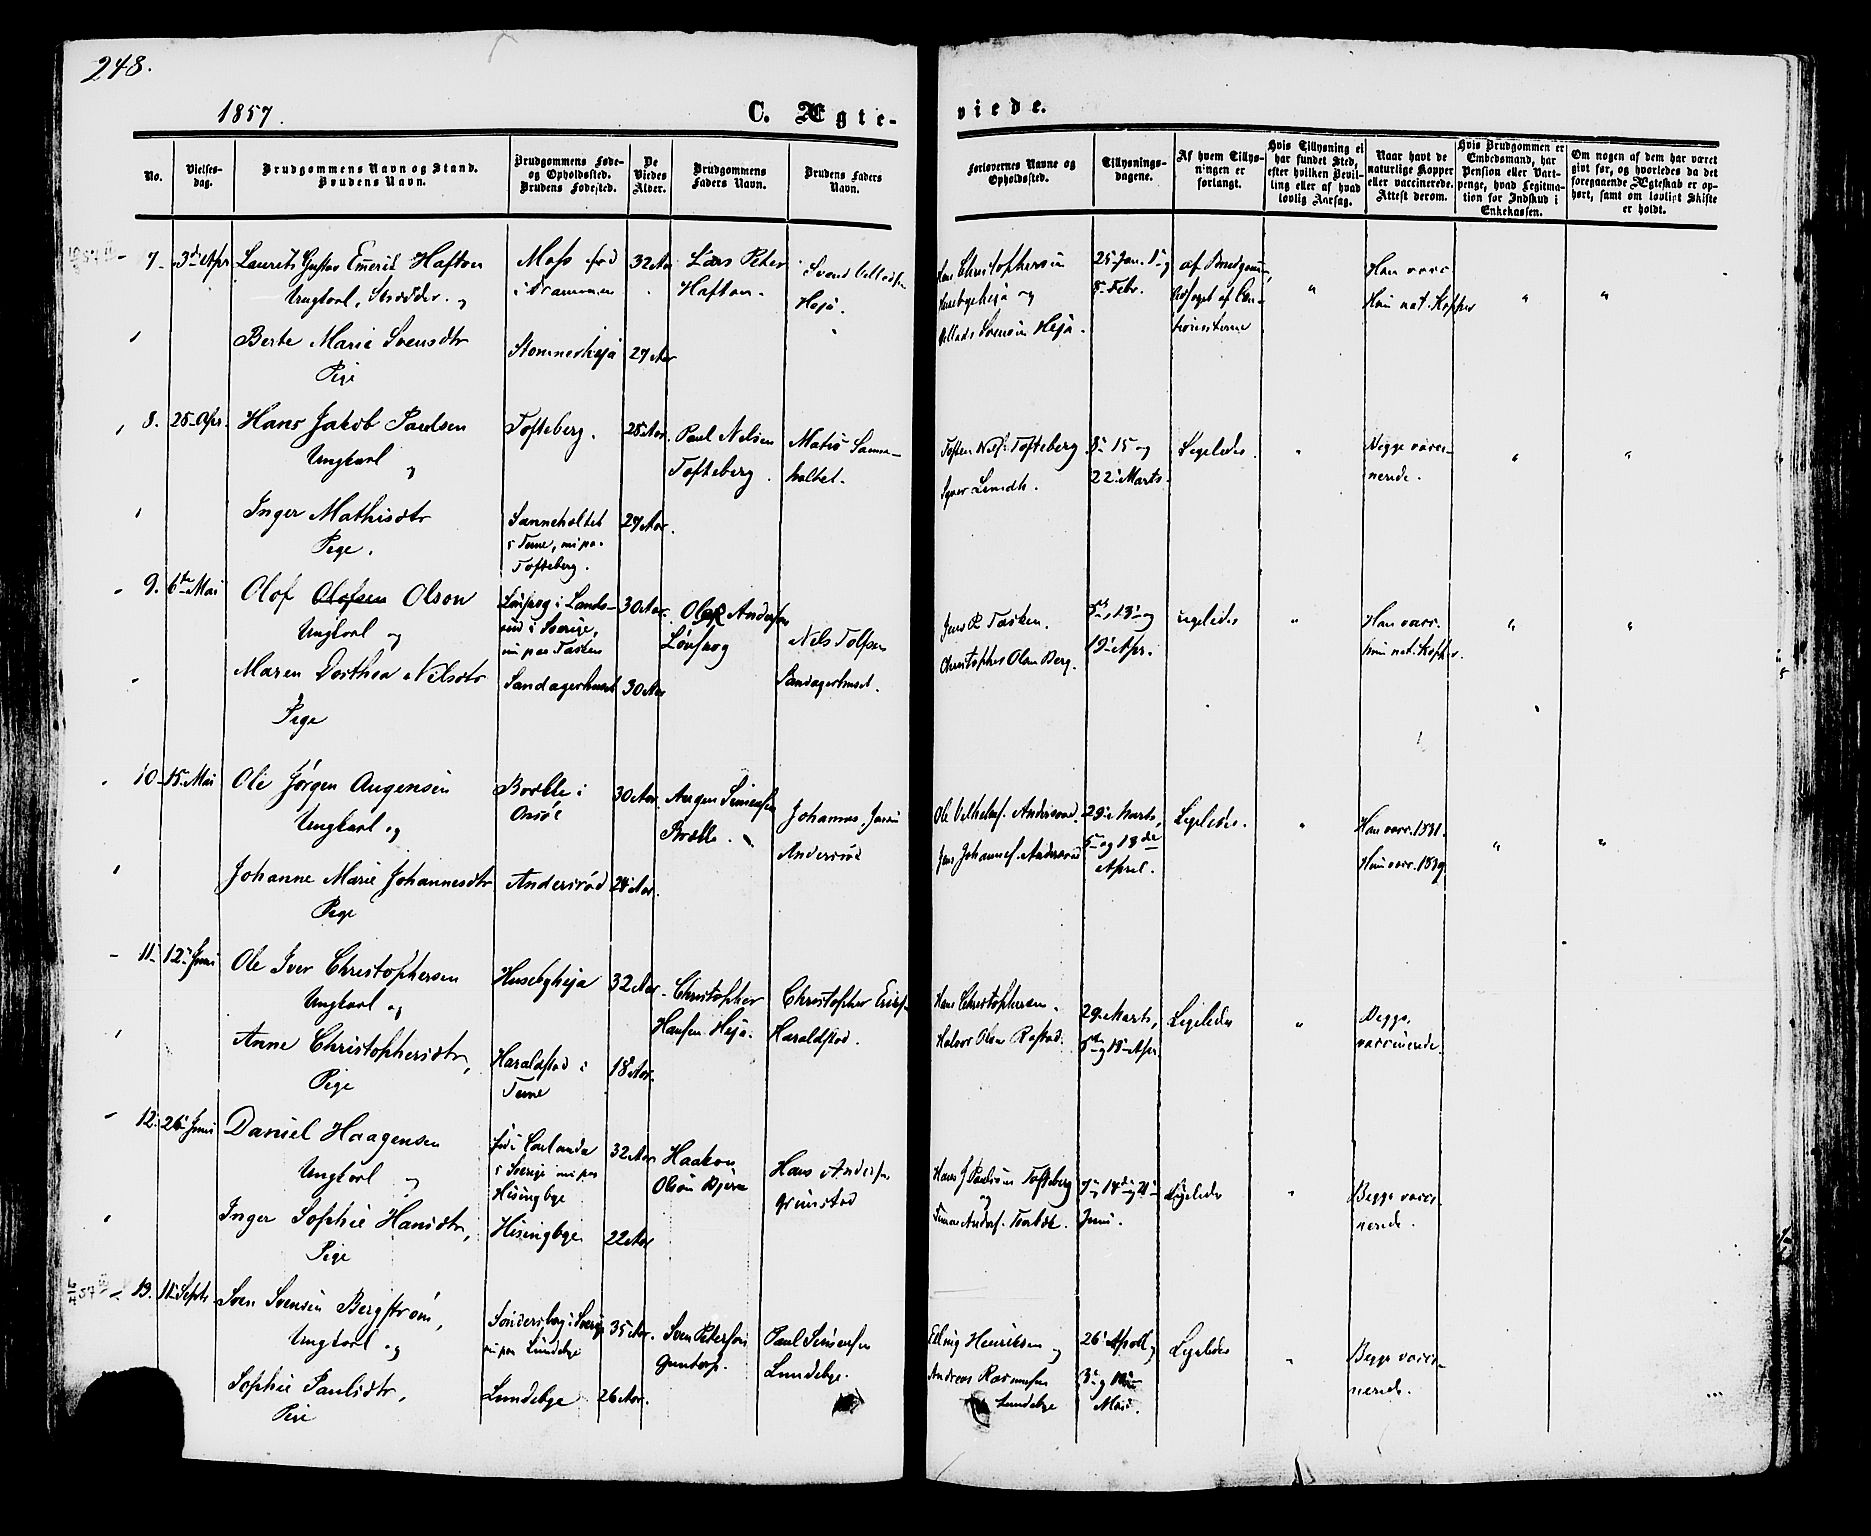 248.
1857.
C. Ægte-
viede.
No.
Vielses-
dag.
Brudgommens Navn og Stand.
Brudens Navn.
Brudgommens Føde-
og Opholdssted.
Brudens Fødested.
De
Viedes
Alder.
Brudgommens
Faders Navn.
Brudens Faders
Navn.
Forlovernes Navne og
Opholdssted.
Tillysnings-
dagene.
Af hvem Tillys-
ningen er
forlangt.
Hvis Tillysning ei
har fundet Sted,
efter hvilken Bevil-
ling eller af hvad
lovlig Aarsag.
Naar havt de
naturlige Kopper
eller vaccinerede.
Attest derom.
Hvis Brudgommen er
Embedsmand, har
Pension eller Vart-
penge, hvad Legitima-
tion for Indskud i
Enkekassen.
Om nogen af dem har været
givt før, og hvorledes da det
foregaaende Ægteskab er op-
hørt, samt om lovligt Skifte
er holdt.
7. 3die Apr. Laurits Gustav Emeril Hafton
Ungkarl, Skrædder og
Moss fød
i Drammen
32 Aar
Lars Peter
Hafton.
Svend
Hejo.
Hans Christophersen
og
Svensen Hejo.
25 Jan. 1 og
8 Febr.
af Brudgommen,
Han vacc.
Hun nat. Kopper
" " "
Berte Marie Svensdtr
Pige
Stommerheja 27 Aar
8. 28 Apr. Hans Jakob Paulsen
Ungkarl
og
Tofteberg. 28 Aar.
Paul Nelsen
Tofteberg.
Matis Sanne-
holtet.
Tofteberg
8 15 og
22 Marts.
Ligeledes.
Begge vacci-
nerede.
" " "
Inger Mathisdtr
Pige.
Sanneholtet
i Terne,
Tofteberg.
27 Aar.
9. 6te Mai Olof Olofsen Olson
Ungkarl og
i Sverige,
30 Aar.
Olof Andersen
Nils
Sandagerhuset.
Jens P. Tasken.
Christopher Olsen Berg.
5te, 13 og
19 Apr.
Ligeledes
Han vacc.
hun nat. Kopper.
" " "
Maren Dorthea Nilsdtr
Pige
Sandagerhuset 30 Aar
10. 15 Mai Ole Jørgen Augensen
Ungkarl og
Brelle i
Onsöe
30 Aar.
Augen Simensen
Brelle.
Johannes
Andersröd
Ole Vilhelms. Andersröd.
Jens Johannes. Andersröd
29 Marts,
5 og 13de
April.
Ligeledes.
Han vacc. 1831.
Hun vacc. 1839.
" " "
Johanne Marie Johannesdtr
Pige
Andersröd 24 Aar.
11. 12 Juni Ole Iver Christophersen
Ungkarl og
Husebyheja 32 Aar.
Christopher
Hansen Heja.
Christopher
Haraldstad.
Hans Christophersen.
Halvor Olsen
29 Marts,
5te og 13 Apr.
Ligeledes
"
Begge
vaccinerede.
Anne Christophersdtr,
Pige
Haraldstad i
Terne
18 Aar.
12. 26 Juni Daniel Haagensen
Ungkarl
og
i Sverige
Hisingbye
32 Aar
Haakon
Olsön
Hans Anders.
Grimstad
Hans J. Paulsen Tofteberg
og
7, 14 og 21
Juni.
Ligeledes
"
Begge vacci-
nerede.
Inger Sophie Hansdtr,
Pige
Hisingbye 22 Aar
13. 11 Septr. Sven Svensen Bergström,
Ungkarl og
i Sverige
Lundebye
35 Aar.
Sven Petersen
Guntorp.
Paul Simensen
Lundebye.
Henriksen og
Andreas Rasmusen
Lundebye
26 April,
3 og 10
Mai.
Ligeledes
"
Begge vacci-
nerede.
Sophie Paulsdtr,
Pige
Lundebye 26 Aar.